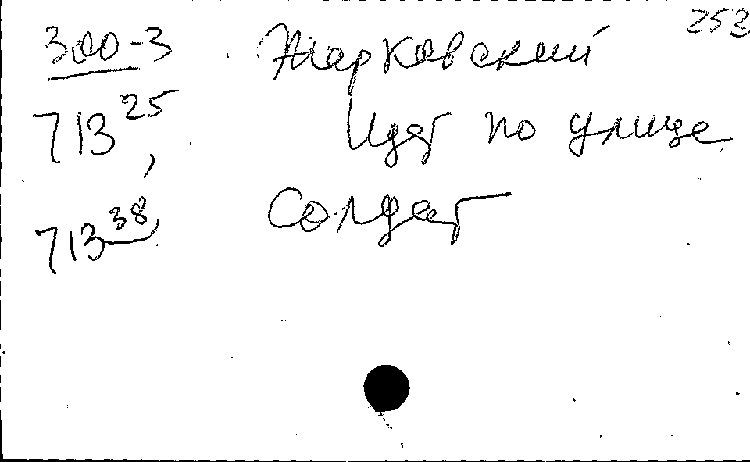 253
300-3 Жарковский
713 25, Идет по улице
713 38, Солдат